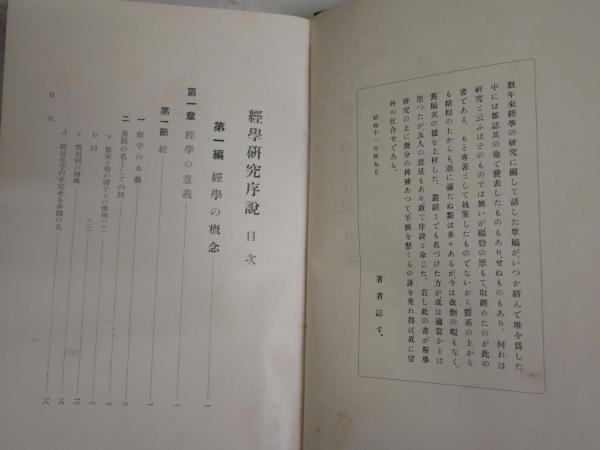 數年來經學の研究に關して話した草稿が、いつか積んで堆を爲した。
中には雜誌其の他で發表したものもあり、せぬものもあり、何れは
研究と云ふほどのものでは無いが、鷄肋の思もて、取纒めたのが此の
書である。もと專著として執筆したものでないから、體系の上から
も精粗の上からも、意に滿たぬ點は多々あるが、今は改刪の暇もなく、
舊稿其の儘を上梓した。叢話とでも名づけた方が或は適當かとは
思つたが、友人の意見もあり敢て序說と命じた。若し此の書が斯學
研究の上に幾分の裨補あつて、羊頭を懸くるの誹を免れ得ば、眞に望
外の仕合せである。
昭和十一年秋九月
著者誌す。
經學研究序說 目次
第一編 經學の概念 一
第一章 經學の意義 一
第一節 經 一
一 經字の本義 一
二 典籍の名としての經 二
a 儒家と他の諸子との慣例(一)
b 同 (二)
c 慣用例の
d 經は孔子の手定せる典籍の名
目次